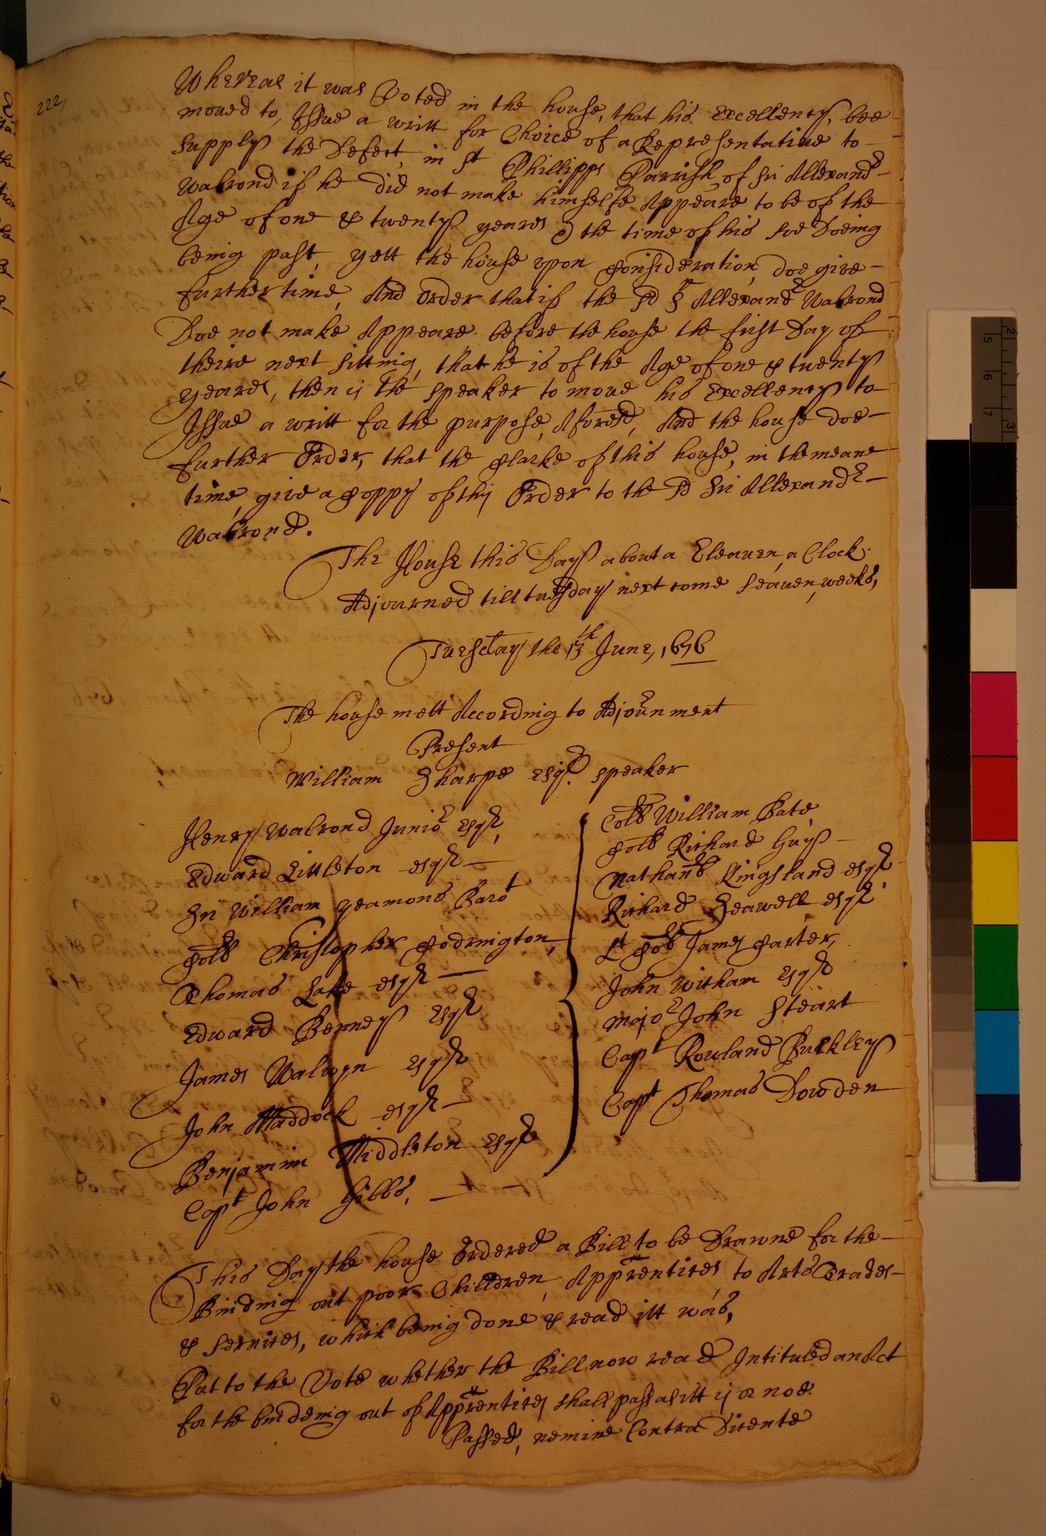 222,
Whereas it was Voted in the house, that his Excellency, bee
moued to, Issue a writt for Choice of a Representatiue to
supply the Defect, in St Phillipps Parrish of Sir Allexandr
Walrond if he did not make himselfe Appeare to be of the
Age of one & twenty yeares & the time of his soe Doeing
being past, yett the house vpon Consideration doe giue
further time, And Order that if the sd Sr Allexandr Walrond
Doe not make Appeare before the house the first Day of
theire next sitting, that he is of the Age of one & twenty
yeares, then is the speaker to moue his Excellency to
Issue a writt for the purpose, Aforesd, And the house doe
further Order, that the Clarke of this house, in the meane
time, giue a Coppy of this Order to the sd Sir Allexandr
Walrond.
The House this Day about a Eleauen, a Clock
Adjourned till tuesday next come seauen, weeks,
Tuesday the 13th June, 1676
The house mett According to Adjournment
Present
William Sharpe Esqr. speaker
Henry Walrond Junior Esqr,
Edward Littleton esqr
Sr William Yeamons Barot
Collo Christopher Codrington,
Thomas Lake esqr
Edward Benney Esqr
James Walwyn Esqr
John Maddock esqr
Benjamin Middleton Esqr
Capt John Gibbs,
Collo William Bate
Collo Richard Guy
Nathanll Kingsland esqr
Richard Seawell esqr
Lt Collo James Carter,
John Witham Esqr
Major John Steart
Capt Rowland Buckley
Capt Thomas Dowden
This Day the house Ordered a Bill to be Drawne for the
Binding out poor Children, Apprentices to Arts Trades
& seruices, which being done & read itt was,
Put to the Vote whether the Bill now read Intituled an Act
for the bindeing out of Apprentices shall pass as itt is or noe
Passed, nemine Contra Dicente